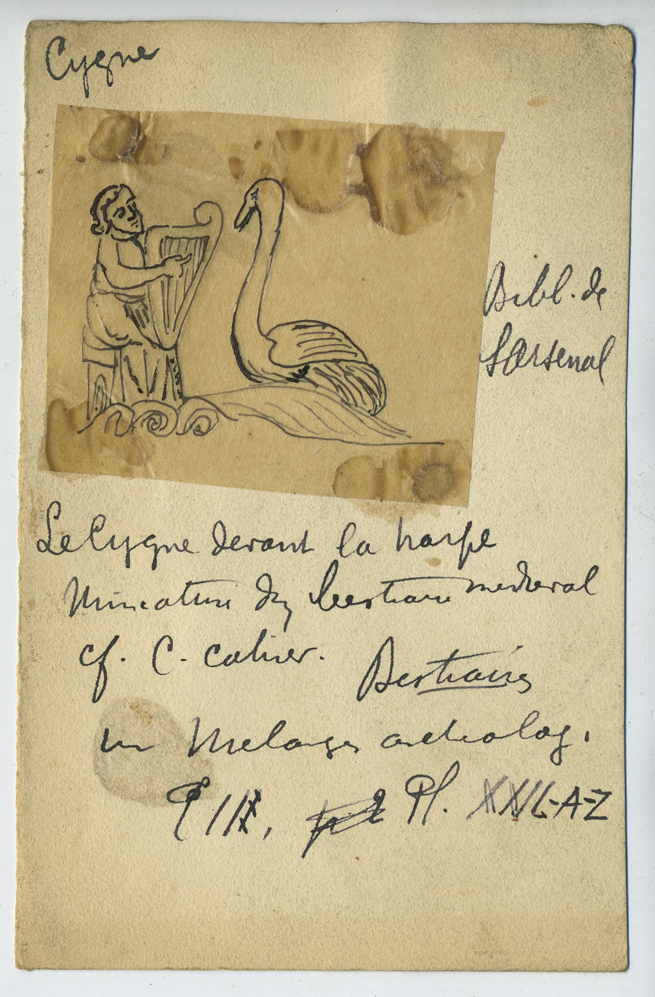 Cygne
Bibl. de
l'Arsenal
Le Cygne devant la harpe
Miniature d'un bestiaire médiéval
cf. C. Cahier. Bestiaires
in Mélanges archéolog.
Pl. XXII-A-Z